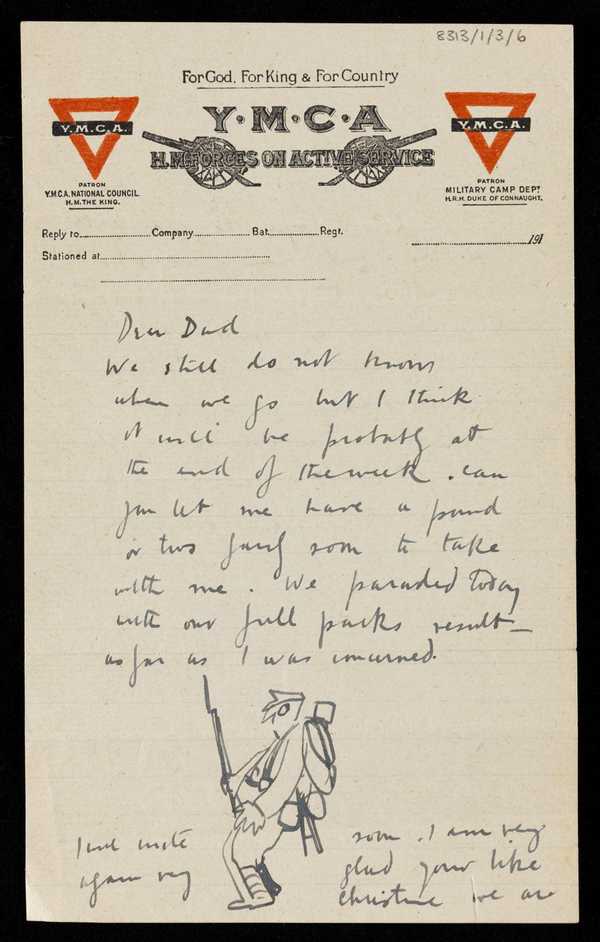 8313/1/3/6
For God, For King & For Country
Y·M·C·A
H.M. FORCES ON ACTIVE SERVICE
Y.M.C.A.
PATRON
Y.M.C.A. NATIONAL COUNCIL
H.M. THE KING.
Y.M.C.A.
PATRON
MILITARY CAMP DEPT
H.R.H. DUKE OF CONNAUGHT.
Reply to Company Bat. Regt.
191
Stationed at
Dear Dad
We still do not know
when we go but I think
it will be probably at
the end of the week. can
you let me have a pound
or two fairly soon to take
with me. We paraded today
with our full packs result—
as far as I was concerned.
I will write soon. I am very
again very glad your like
Christine we are